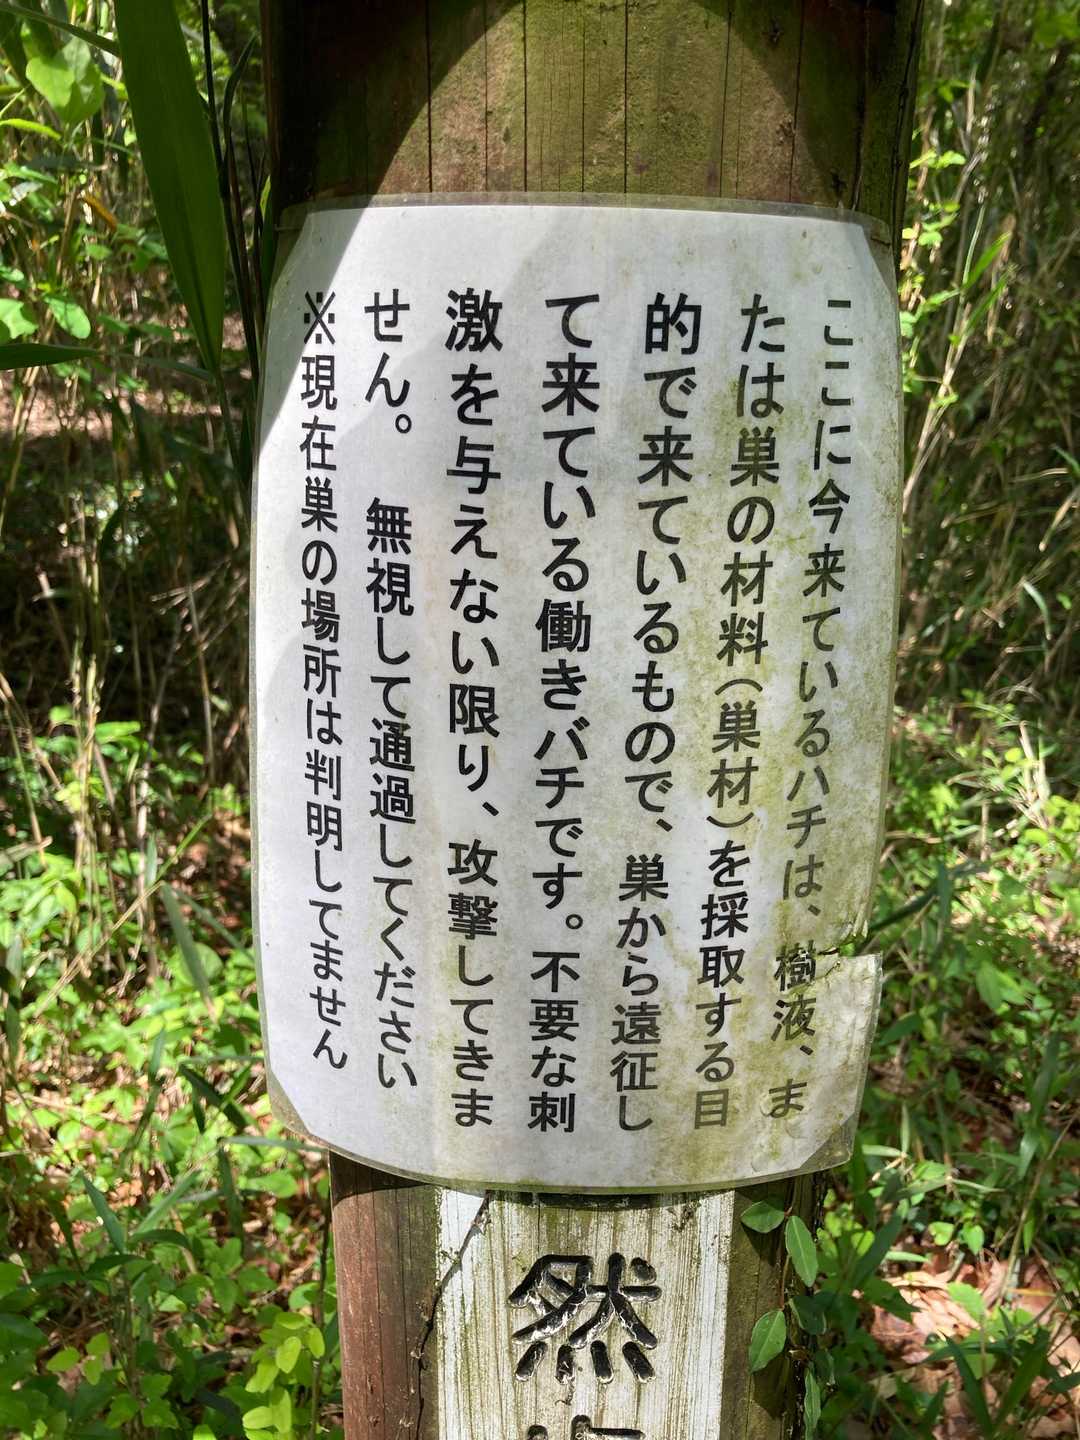 ここに今来ているハチは、樹液、ま
たは巣の材料(巣材)を採取する目
的で来ているもので、巣から遠征し
て来ている働きバチです。不要な刺
激を与えない限り、攻撃してきま
せん。 無視して通過してください
※現在巣の場所は判明してません
然